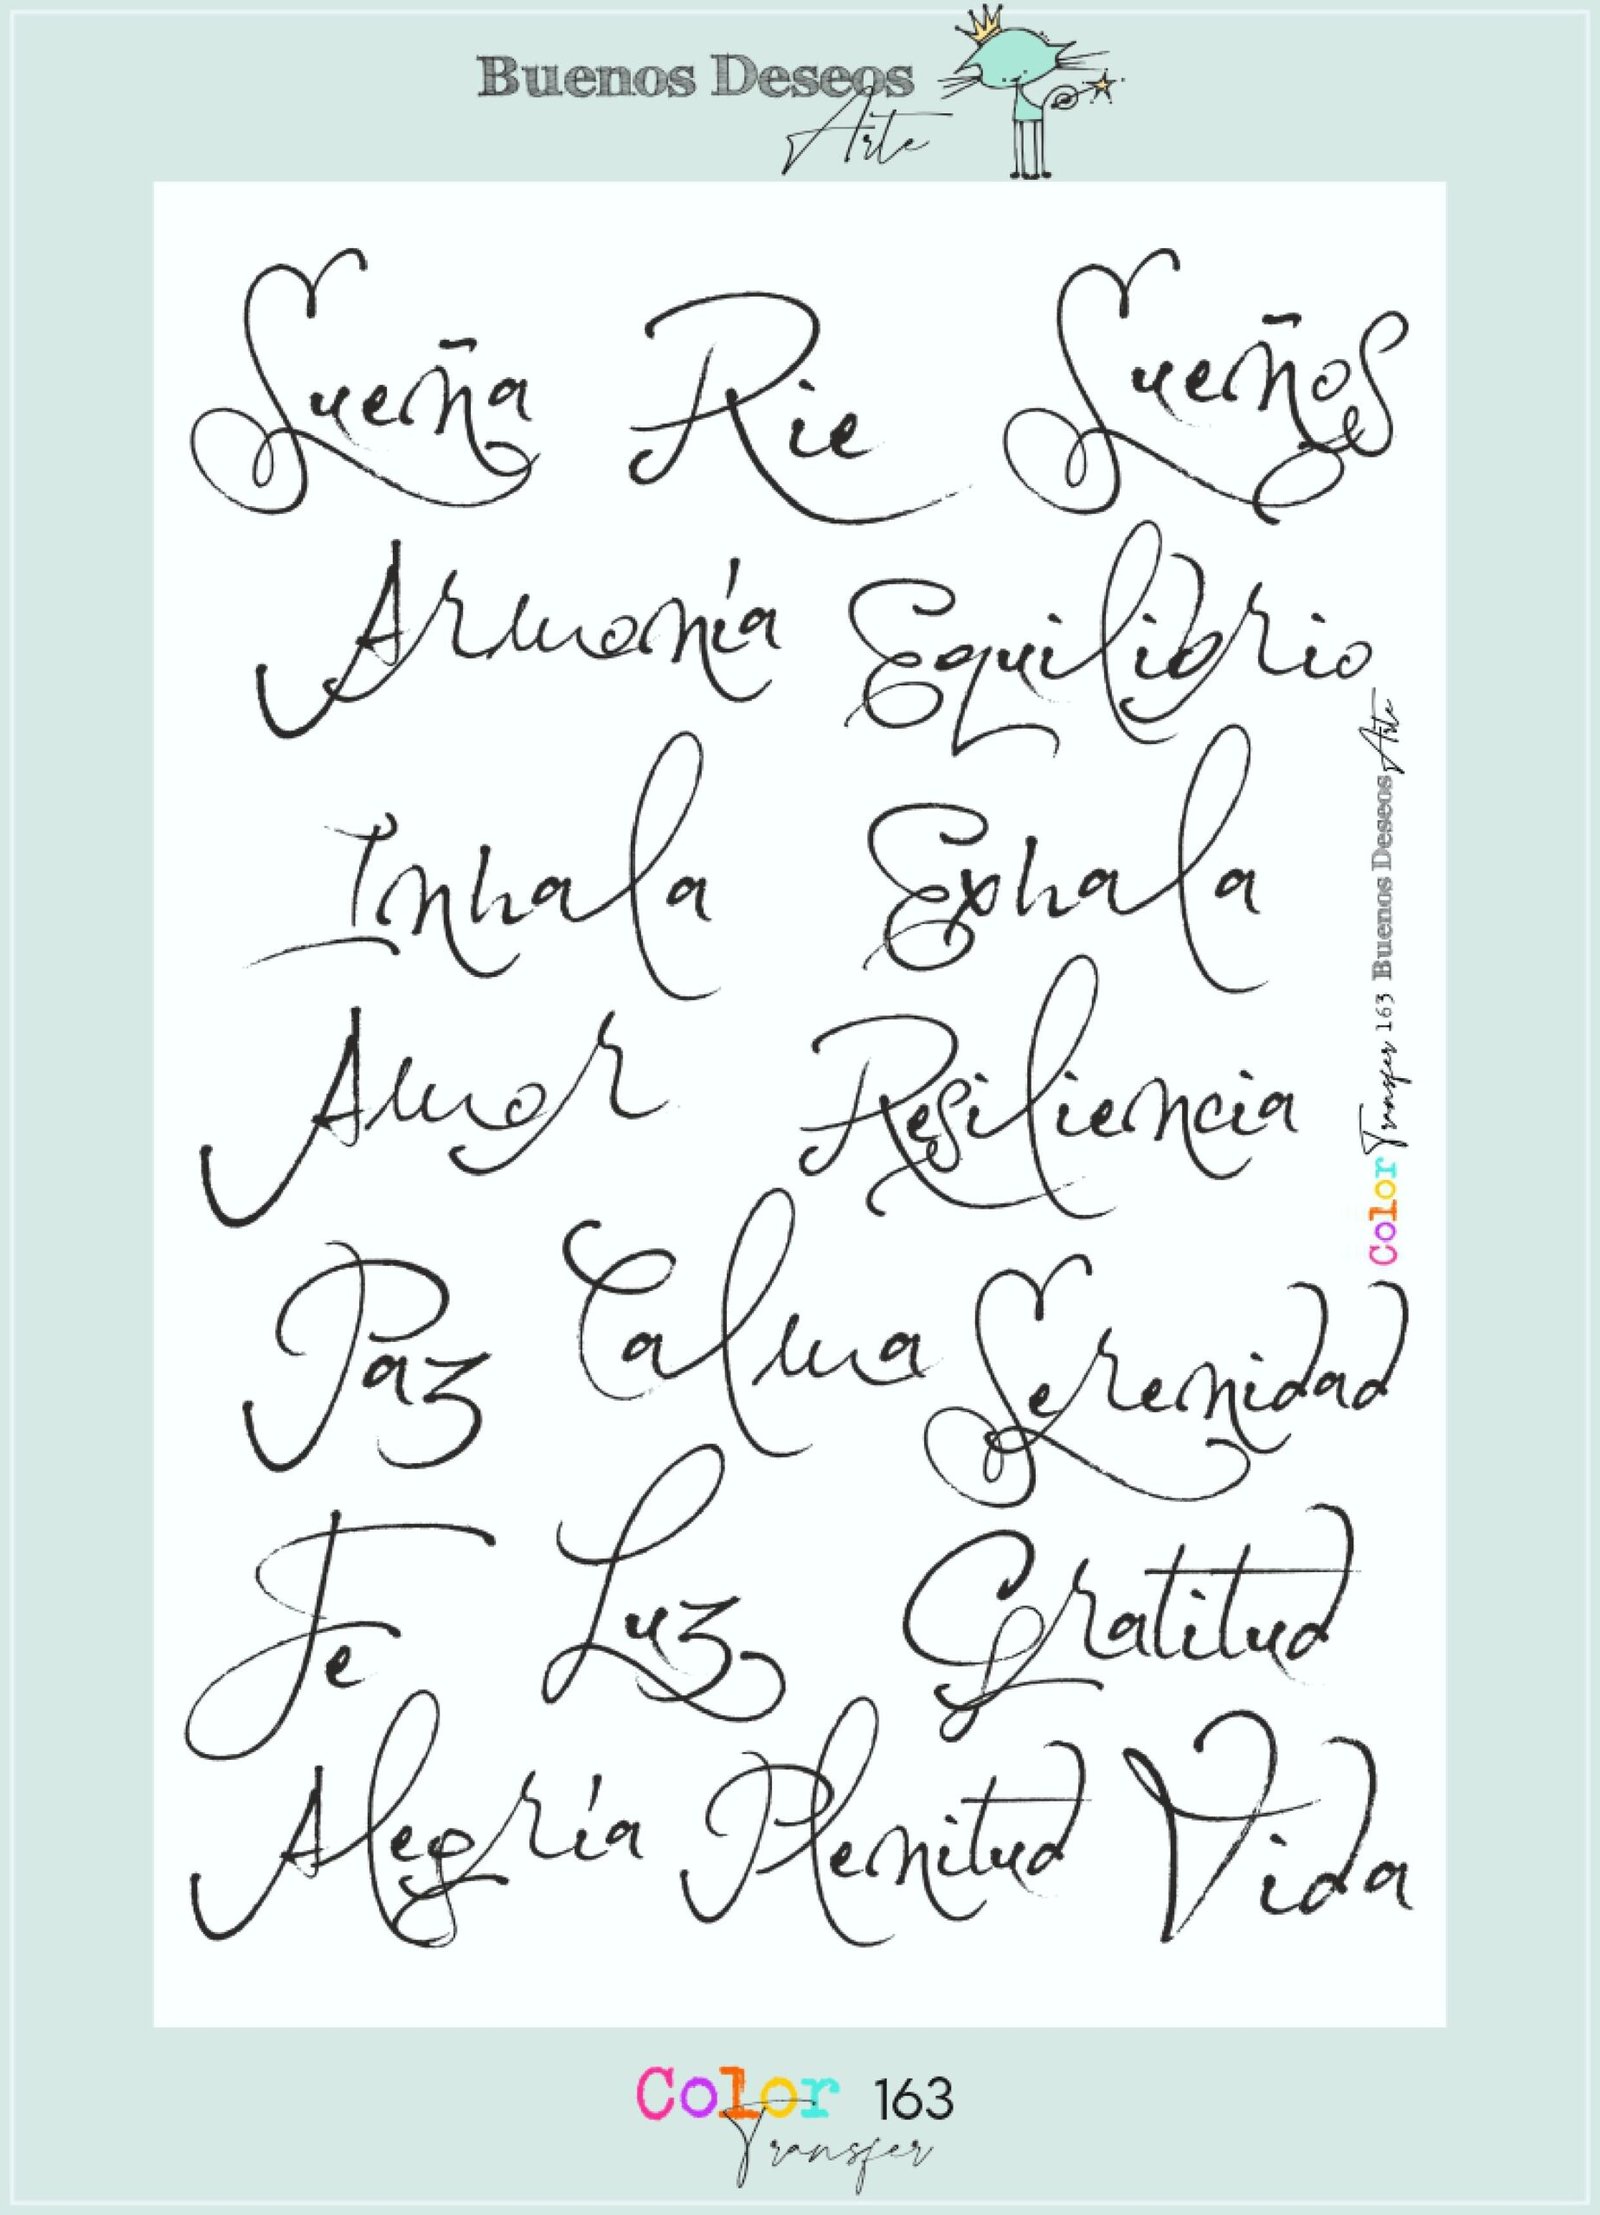 Buenos Deseos
Arte
Sueña Rie Sueños
Armonía Equilibrio
Inhala Exhala
Amor Resiliencia
Paz Calma Serenidad
Fe Luz Gratitud
Alegría Plenitud Vida
Color Transfer 163 Buenos Deseos Arte
Color 163
Transfer